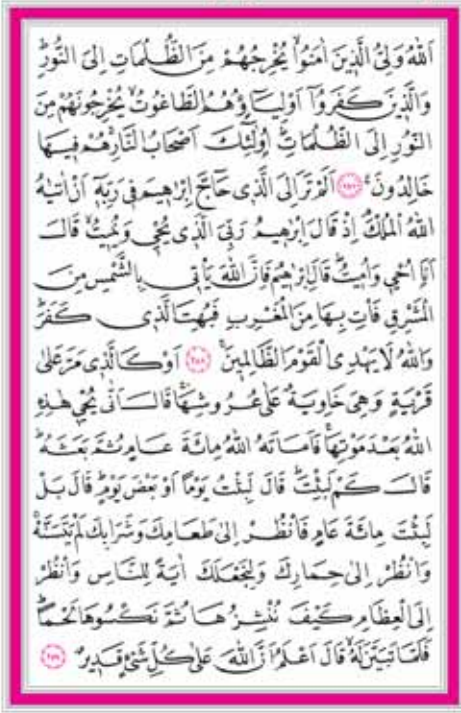 اَللّٰهُ وَلِيُّ الَّذ۪ينَ اٰمَنُواۙ يُخْرِجُهُمْ مِنَ الظُّلُمَاتِ اِلَى النُّورِۜ
وَالَّذ۪ينَ كَفَرُٓوا اَوْلِيَٓاؤُ۬هُمُ الطَّاغُوتُۙ يُخْرِجُونَهُمْ مِنَ
النُّورِ اِلَى الظُّلُمَاتِۜ اُو۬لٰٓئِكَ اَصْحَابُ النَّارِۚ هُمْ ف۪يهَا
خَالِدُونَ۟ ﴿٢٥٧﴾ اَلَمْ تَرَ اِلَى الَّذ۪ي حَٓاجَّ اِبْرٰه۪يمَ ف۪ي رَبِّه۪ٓ اَنْ اٰتٰيهُ
اللّٰهُ الْمُلْكَۢ اِذْ قَالَ اِبْرٰه۪يمُ رَبِّيَ الَّذ۪ي يُحْي۪ وَيُم۪يتُۙ قَالَ
اَنَا۬ اُحْي۪ وَاُم۪يتُۜ قَالَ اِبْرٰه۪يمُ فَاِنَّ اللّٰهَ يَأْت۪ي بِالشَّمْسِ مِنَ
الْمَشْرِقِ فَأْتِ بِهَا مِنَ الْمَغْرِبِ فَبُهِتَ الَّذ۪ي كَفَرَۜ
وَاللّٰهُ لَا يَهْدِي الْقَوْمَ الظَّالِم۪ينَۚ ﴿٢٥٨﴾ اَوْ كَالَّذ۪ي مَرَّ عَلٰى
قَرْيَةٍ وَهِيَ خَاوِيَةٌ عَلٰى عُرُوشِهَاۚ قَالَ اَنّٰى يُحْي۪ هٰذِهِ
اللّٰهُ بَعْدَ مَوْتِهَاۚ فَاَمَاتَهُ اللّٰهُ مِائَةَ عَامٍ ثُمَّ بَعَثَهُۜ
قَالَ كَمْ لَبِثْتَۜ قَالَ لَبِثْتُ يَوْمًا اَوْ بَعْضَ يَوْمٍۜ قَالَ بَلْ
لَبِثْتَ مِائَةَ عَامٍ فَانْظُرْ اِلٰى طَعَامِكَ وَشَرَابِكَ لَمْ يَتَسَنَّهْۚ
وَانْظُرْ اِلٰى حِمَارِكَ وَلِنَجْعَلَكَ اٰيَةً لِلنَّاسِ وَانْظُرْ
اِلَى الْعِظَامِ كَيْفَ نُنْشِزُهَا ثُمَّ نَكْسُوهَا لَحْمًاۜ
فَلَمَّا تَبَيَّنَ لَهُۙ قَالَ اَعْلَمُ اَنَّ اللّٰهَ عَلٰى كُلِّ شَيْءٍ قَد۪يرٌ ﴿٢٥٩﴾